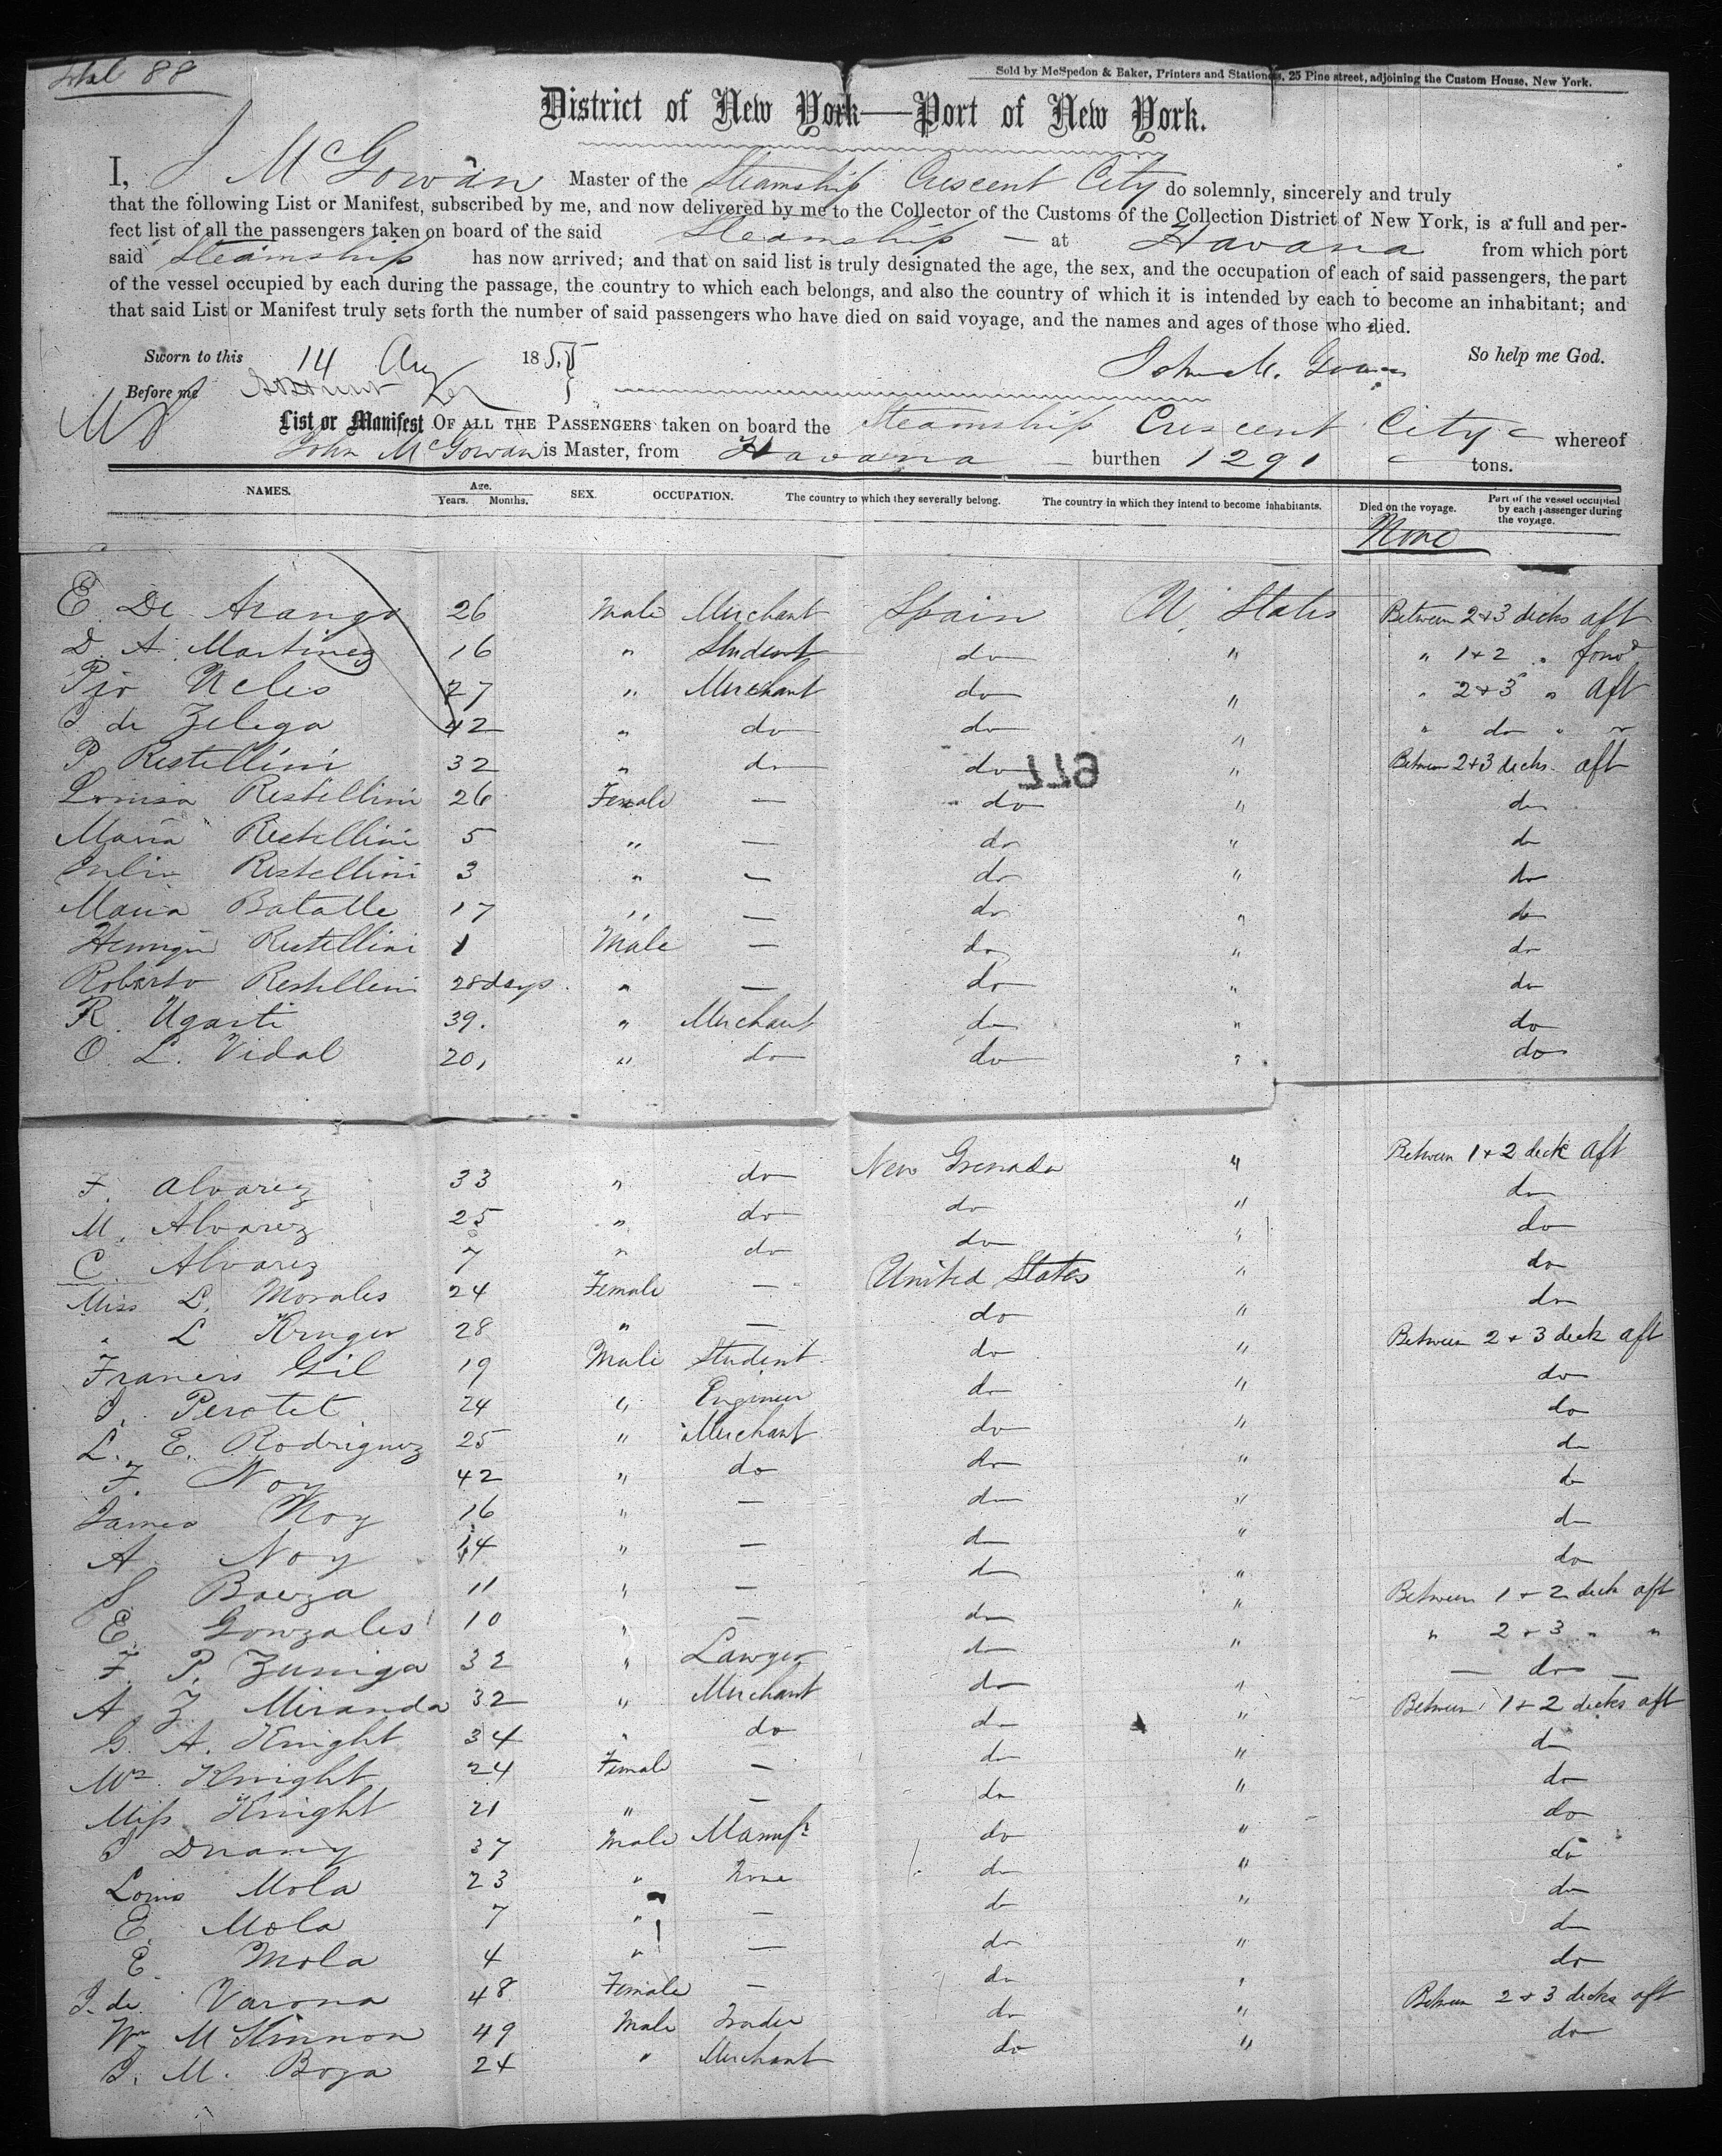 Total 88
Sold by McSpedon & Baker, Printers and Stationers, 25 Pine street, adjoining the Custom House, New York.
District of New York—Port of New York.
I, J McGowan Master of the Steamship Crescent City do solemnly, sincerely and truly
that the following List or Manifest, subscribed by me, and now delivered by me to the Collector of the Customs of the Collection District of New York, is a full and per-
fect list of all the passengers taken on board of the said Steamship — at Havana from which port
said Steamship has now arrived; and that on said list is truly designated the age, the sex, and the occupation of each of said passengers, the part
of the vessel occupied by each during the passage, the country to which each belongs, and also the country of which it is intended by each to become an inhabitant; and
that said List or Manifest truly sets forth the number of said passengers who have died on said voyage, and the names and ages of those who died.
Sworn to this 14 Aug 1855 So help me God.
John McGowan
Before me
List or Manifest OF ALL THE PASSENGERS taken on board the Steamship Crescent City whereof
John McGowan is Master, from Havana — burthen 1291 tons.
NAMES. Age. Years. Months. SEX. OCCUPATION. The country to which they severally belong. The country in which they intend to become inhabitants. Died on the voyage. Part of the vessel occupied by each passenger during the voyage.
None
E. De Arango 26 Male Merchant Spain U. States Between 2+3 decks aft
D. A. Martinez 16 " Student do " " 1+2 " forwd
Pio Ucles 27 " Merchant do " " 2+3 " aft
de Zelega 42 " do do " " do " "
P Restellini 32 " do do " Between 2+3 decks aft
677
Louisa Restellini 26 Female — do " do
Maria Restellini 5 " — do " do
Julia Restellini 3 " — do " do
Maria Batalle 17 " — do " do
Restellini 1 Male — do " do
Roberto Restellini 28 days " — do " do
R. Ugarti 39. " Merchant do " do
O L. Vidal 20, " do do " do
F. Alvarez 33 " do New Grenada " Between 1+2 deck aft
M. Alvarez 25 " do do " do
C. Alvarez 7 " do do " do
Miss L. Morales 24 Female — United States " do
" L Kruger 28 " — do " do
Francis Gil 19 Male Student do " Between 2+3 deck aft
J. Perotet 24 " Engineer do " do
L. E. Rodriguez 25 " Merchant do " do
F. Noy 42 " do do " do
James Noy 16 " — do " do
A Noy 14 " — do " do
S Baeza 11 " — do " do
E. Gonzales 10 " — do " Between 1+2 deck aft
F. P. Zuniga 32 " Lawyer do " " 2+3 " "
A Z Miranda 32 " Merchant do " — do —
G. A. Knight 34 " do do " Between 1+2 decks aft
Mrs. Knight 24 Female — do " do
Miss Knight 21 " — do " do
J Duany 37 Male Manufr do " do
Louis Mola 23 " None do " do
E. Mola 7 " — do " do
E Mola 4 " — do " do
J. de Varona 48 Female — do " do
Wm McKinnon 49 Male Trader do " Between 2+3 decks aft
J. M. Boza 24 " Merchant do " do